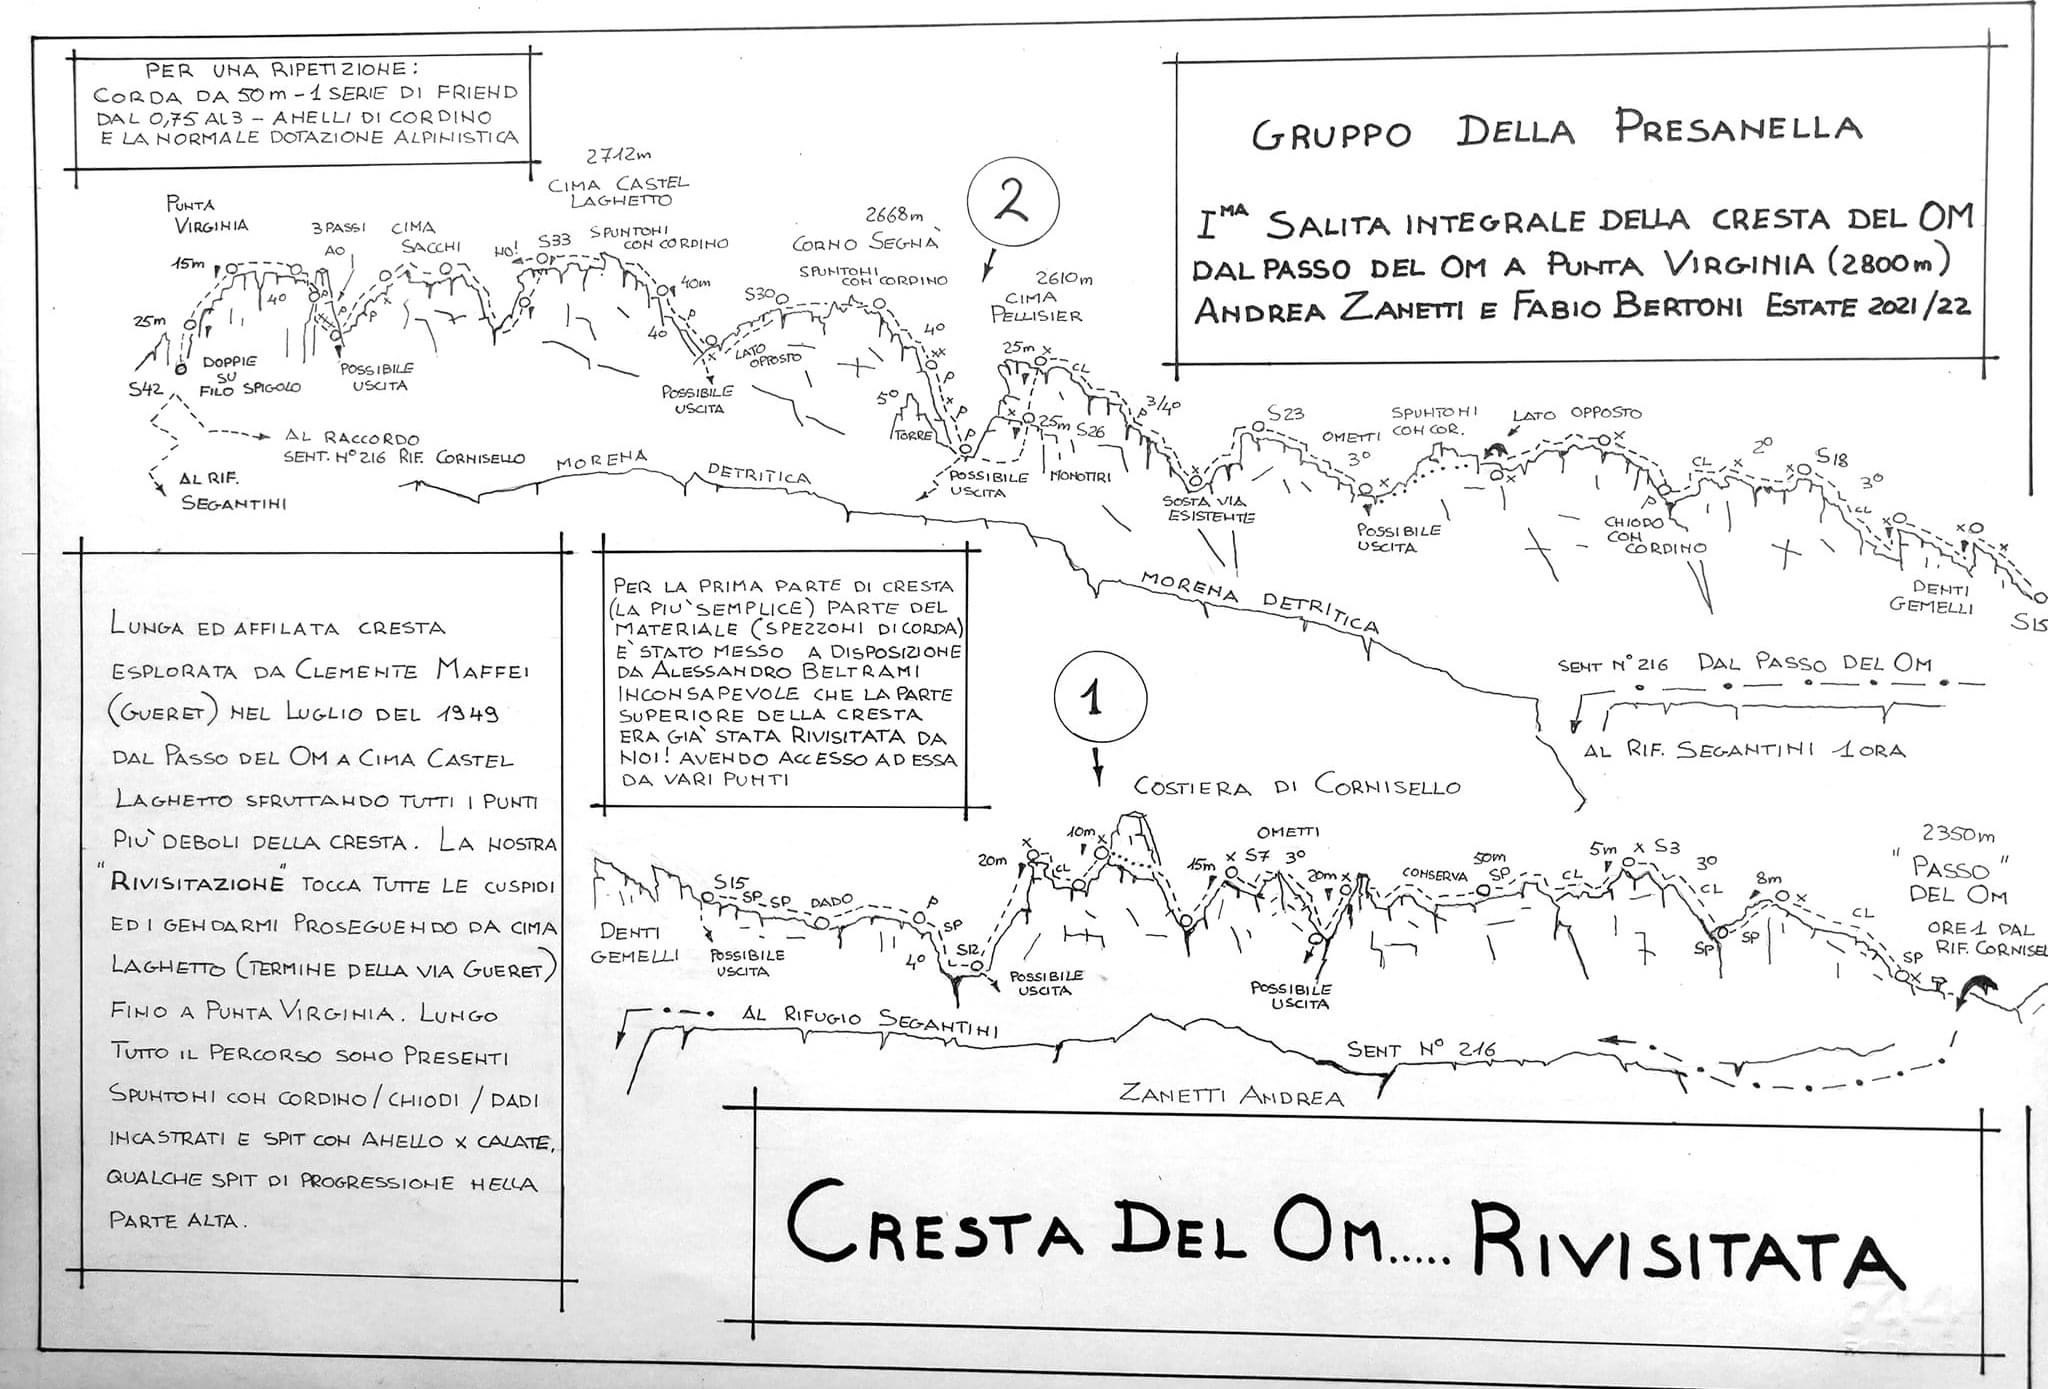 PER UNA RIPETIZIONE:
CORDA DA 50m - 1 SERIE DI FRIEND
DAL 0,75 AL 3 - ANELLI DI CORDINO
E LA NORMALE DOTAZIONE ALPINISTICA
GRUPPO DELLA PRESANELLA
IMA SALITA INTEGRALE DELLA CRESTA DEL OM
DAL PASSO DEL OM A PUNTA VIRGINIA (2800m)
ANDREA ZANETTI E FABIO BERTONI ESTATE 2021/22
2
PUNTA
VIRGINIA
3 PASSI
AO
CIMA
SACCHI
2712m
CIMA CASTEL
LAGHETTO
NO!
S33
SPUNTONI
CON CORDINO
2668m
CORNO SEGNÀ
SPUNTONI
CON CORDINO
2610m
CIMA
PELLISIER
15m
4°
P
P
P
x
25m
S42
DOPPIE
SU
FILO SPIGOLO
POSSIBILE
USCITA
40m
4°
x
POSSIBILE
USCITA
S30
LATO
OPPOSTO
4°
xx
P
x
P
P
5°
TORRE
POSSIBILE
USCITA
25m x
CL
x
25m S26
MONOTIRI
P 3/4°
x
SOSTA VIA
ESISTENTE
S23
OMETTI
3°
x
POSSIBILE
USCITA
SPUNTONI
CON COR.
LATO OPPOSTO
x
x
P
CHIODO
CON
CORDINO
CL
x
2°
x
S18
3°
CL
x
x
x
DENTI
GEMELLI
S15
AL RACCORDO
SENT. N° 216 RIF. CORNISELLO
AL RIF.
SEGANTINI
MORENA
DETRITICA
MORENA DETRITICA
SENT N° 216 DAL PASSO DEL OM
AL RIF. SEGANTINI 1 ORA
LUNGA ED AFFILATA CRESTA
ESPLORATA DA CLEMENTE MAFFEI
(GUERET) NEL LUGLIO DEL 1949
DAL PASSO DEL OM A CIMA CASTEL
LAGHETTO SFRUTTANDO TUTTI I PUNTI
PIU' DEBOLI DELLA CRESTA. LA NOSTRA
"RIVISITAZIONE" TOCCA TUTTE LE CUSPIDI
ED I GENDARMI PROSEGUENDO DA CIMA
LAGHETTO (TERMINE DELLA VIA GUERET)
FINO A PUNTA VIRGINIA. LUNGO
TUTTO IL PERCORSO SONO PRESENTI
SPUNTONI CON CORDINO/CHIODI/DADI
INCASTRATI E SPIT CON ANELLO X CALATE,
QUALCHE SPIT DI PROGRESSIONE NELLA
PARTE ALTA.
PER LA PRIMA PARTE DI CRESTA
(LA PIU' SEMPLICE) PARTE DEL
MATERIALE (SPEZZONI DI CORDA)
E' STATO MESSO A DISPOSIZIONE
DA ALESSANDRO BELTRAMI
INCONSAPEVOLE CHE LA PARTE
SUPERIORE DELLA CRESTA
ERA GIA' STATA RIVISITATA DA
NOI! AVENDO ACCESSO AD ESSA
DA VARI PUNTI
1
COSTIERA DI CORNISELLO
DENTI
GEMELLI
S15
SP SP
DADO
POSSIBILE
USCITA
P
SP
4°
S12
POSSIBILE
USCITA
20m
x
CL
10m
x
15m
x S7
OMETTI
3°
20m x
POSSIBILE
USCITA
CONSERVA
50m
SP
CL
5m x S3
3°
CL
SP
SP
8m
x
CL
SP
x
2350m
"PASSO"
DEL OM
ORE 1 DAL
RIF. CORNISEL
AL RIFUGIO SEGANTINI
SENT N° 216
ZANETTI ANDREA
CRESTA DEL OM..... RIVISITATA